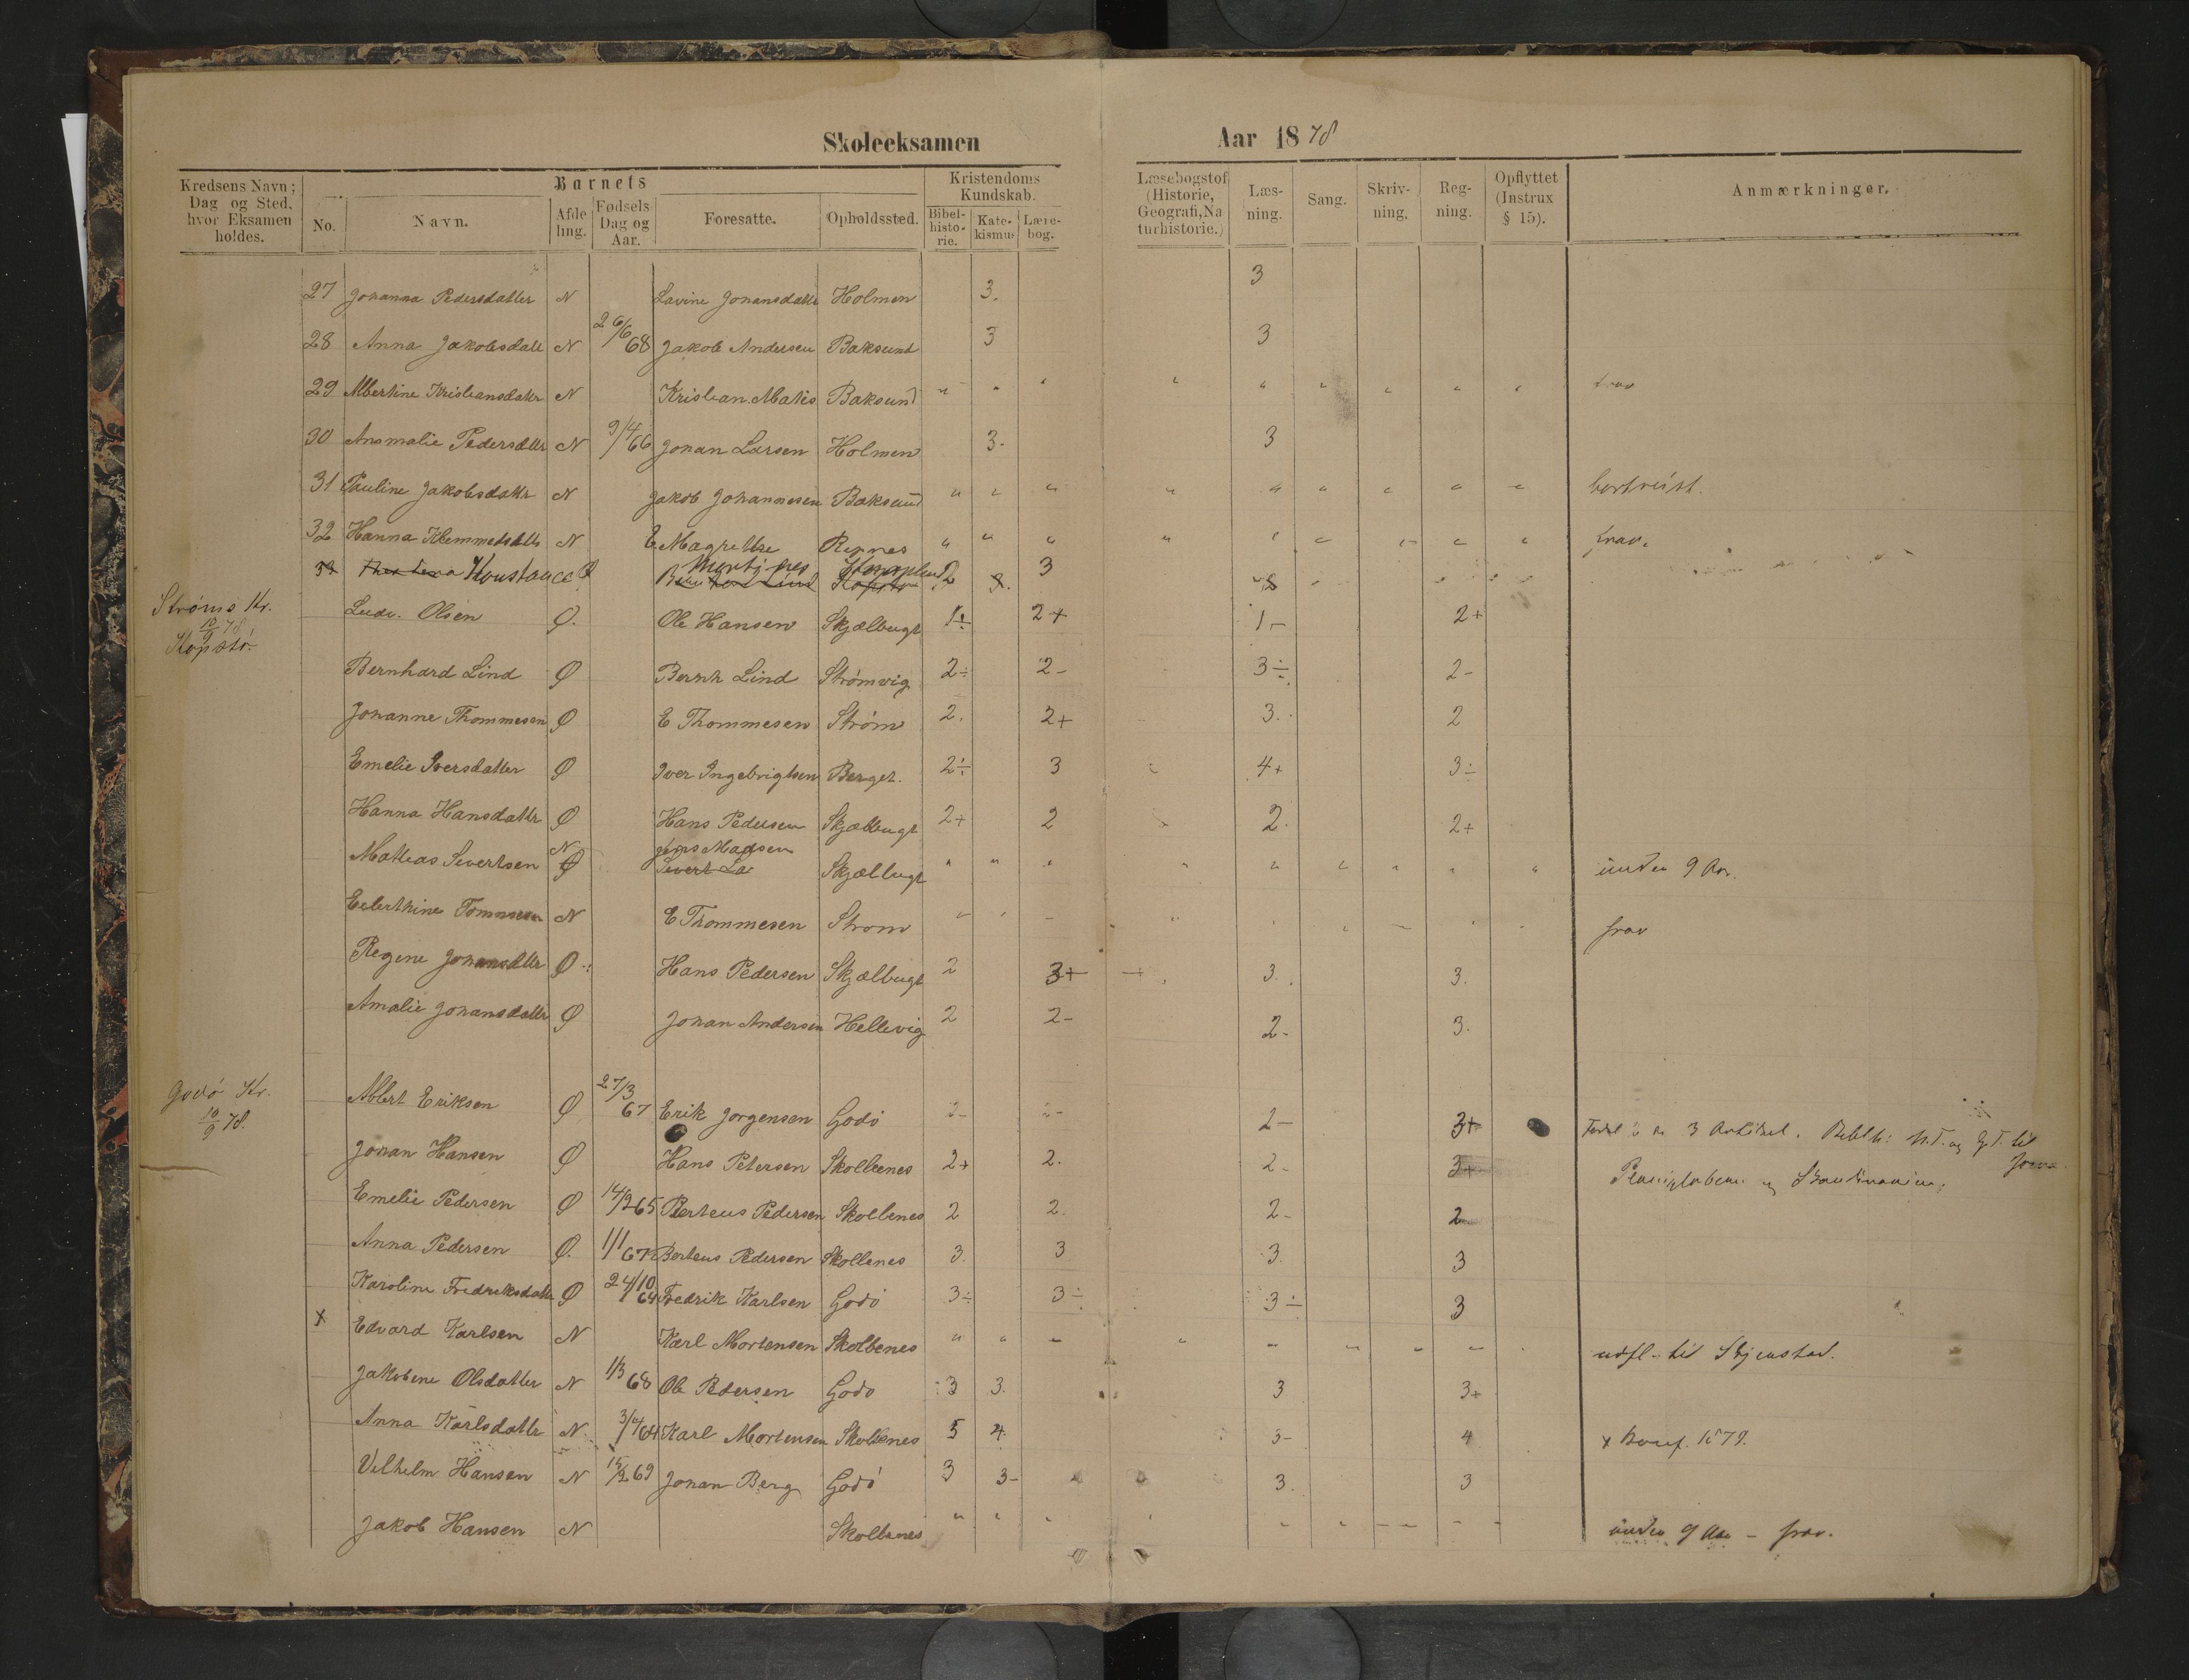 Skoleeksamen Aar 1878
Kredsens Navn; Dag og Sted, hvor Eksamen holdes.
No.
Barnets
Navn.
Afdeling.
Fødsels Dag og Aar.
Foresatte.
Opholdssted.
Kristendoms Kundskab.
Bibelhistorie.
Katekismus
Lærebog.
Læsebogstof (Historie, Geografi, Naturhistorie.)
Læsning.
Sang.
Skrivning.
Regning.
Opflyttet (Instrux § 15).
Anmærkninger.
27 Johanna Pedersdatter N Lavine Johansdatter Holmen 3. 3
28 Anna Jakobsdatt N 26/6 68 Jakob Andersen Baksund 3 3
29 Albertine Kristiansdatr N Kristian Matis Baksund " " " " " " " " " frav
30 Anamalie Pedersdttr N 9/4 66 Johan Larsen Holmen 3. 3
31 Pauline Jakobsdattr N Jakob Johannesen Baksund " " " " " " " " " bortreist.
32 Hanna Klemmetsdttr N E Magrethe Repnes " " " " " " " " " frav.
Konstance Ø 2 3
Strøms Kr.
10/9 78
Kopstø.
Ludv. Olsen Ø. Ole Hansen Skjælbugt 1÷ 2+ 1- 2+
Bernhard Lind Ø Bernh Lind Strømvig 2÷ 2- 3÷ 2-
Johanne Thommesen Ø E Thommesen Strøm 2. 2+ 3. 2
Emelie Iversdatter Ø Iver Ingebrigtsen Berget. 2÷ 3 4+ 3÷
Hanna Hansdattr Ø Hans Pedersen Skjælbugt 2+ 2 2. 2+
Matias Sivertsen N Ø Jens Madsen Sivert La Skjælbugt " " " " " " " " " under 9 Aar.
Tommesen N E Thommesen Strøm " " - " frav
Regine Johansdttr Ø Hans Pedersen Skjælbugt 2 3+ 3. 3.
Amalie Johansdattr Ø Johan Andersen Hellevig 2 2- 2- 3.
Godø Kr.
10/9 78.
Albert Eriksen Ø 27/3 67 Erik Jørgensen Godø 2- 2- 2- 3+ 3 Artikel. N.T. og G.T. til
Johan Hansen Ø Hans Petersen Skolbenes 2+ 2. 2- 3+
Emelie Pedersen Ø 14/2 65 Berteus Pedersen Skolbenes 2 2. 2- 2
Anna Pedersen Ø. 1/1 67 Berteus Pedersen Skolbenes 3. 3 3. 3
Karoline Fredriksdattr Ø 24/10 64 Fredrik Karlsen Godø 3÷ 3÷ 3÷ 3
x Edvard Karlsen N Karl Mortensen Skolbenes " " " " " " " " udfl. til Skjenstad.
Jakobine Olsdatter N 1/3 68 Ole Pedersen Godø 3 3. 3 3+
Anna Karlsdattr N. 3/4 64 Karl Mortensen Skolbenes 5 4 3- 4 x Konf. 1879.
Vilhelm Hansen N 15/2 69 Johan Berg Godø 3 3- 3. 3
Jakob Hansen N Skolbenes " " " " " " " " " under 9 Aar - frav.